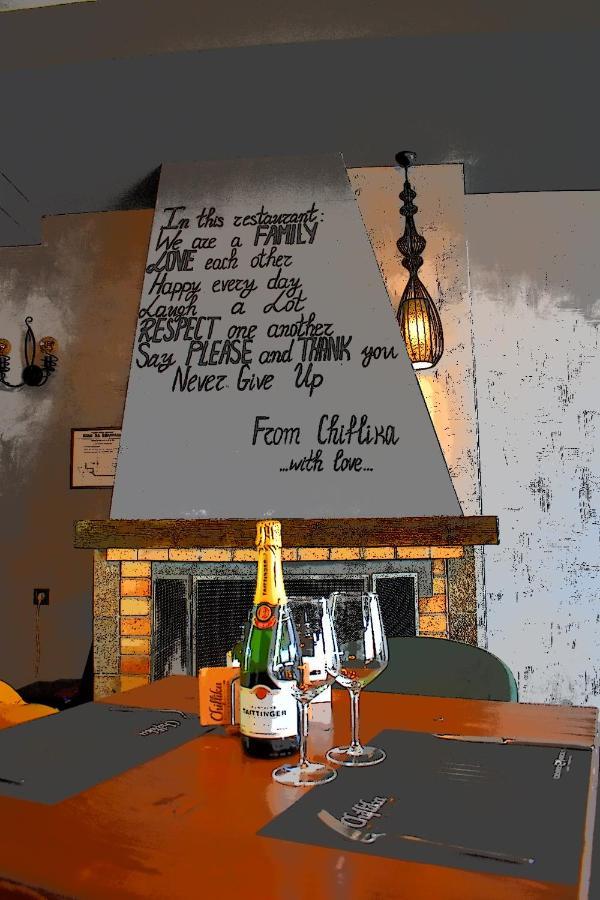 In this restaurant:
We are a FAMILY
LOVE each other
Happy every day
Laugh a Lot
RESPECT one another
Say PLEASE and THANK you
Never Give Up
From Chiflika
...with love...
Chiflika
TAITTINGER
Chiflika
Chiflika